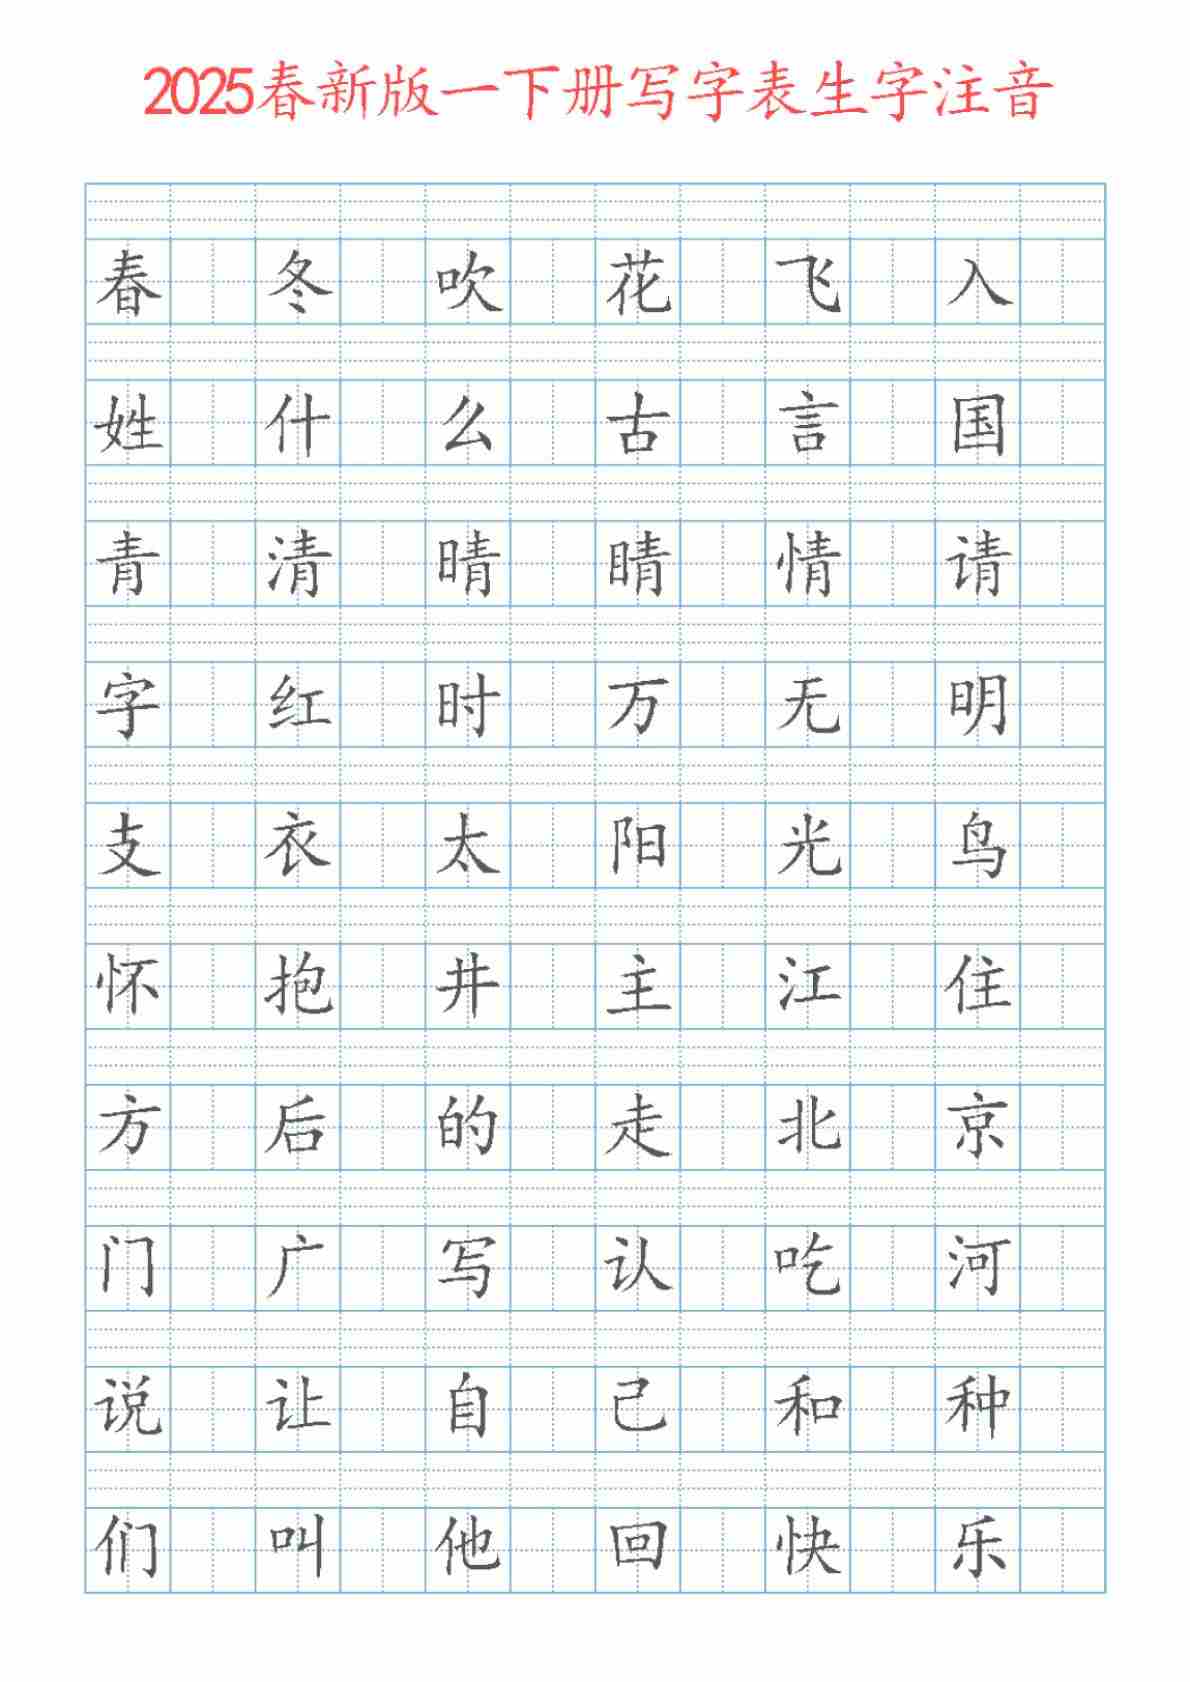 2025春新版一下册写字表生字注音
春 冬 吹 花 飞 入
姓 什 么 古 言 国
青 清 晴 睛 情 请
字 红 时 万 无 明
支 衣 太 阳 光 鸟
怀 抱 井 主 江 住
方 后 的 走 北 京
门 广 写 认 吃 河
说 让 自 己 和 种
们 叫 他 回 快 乐